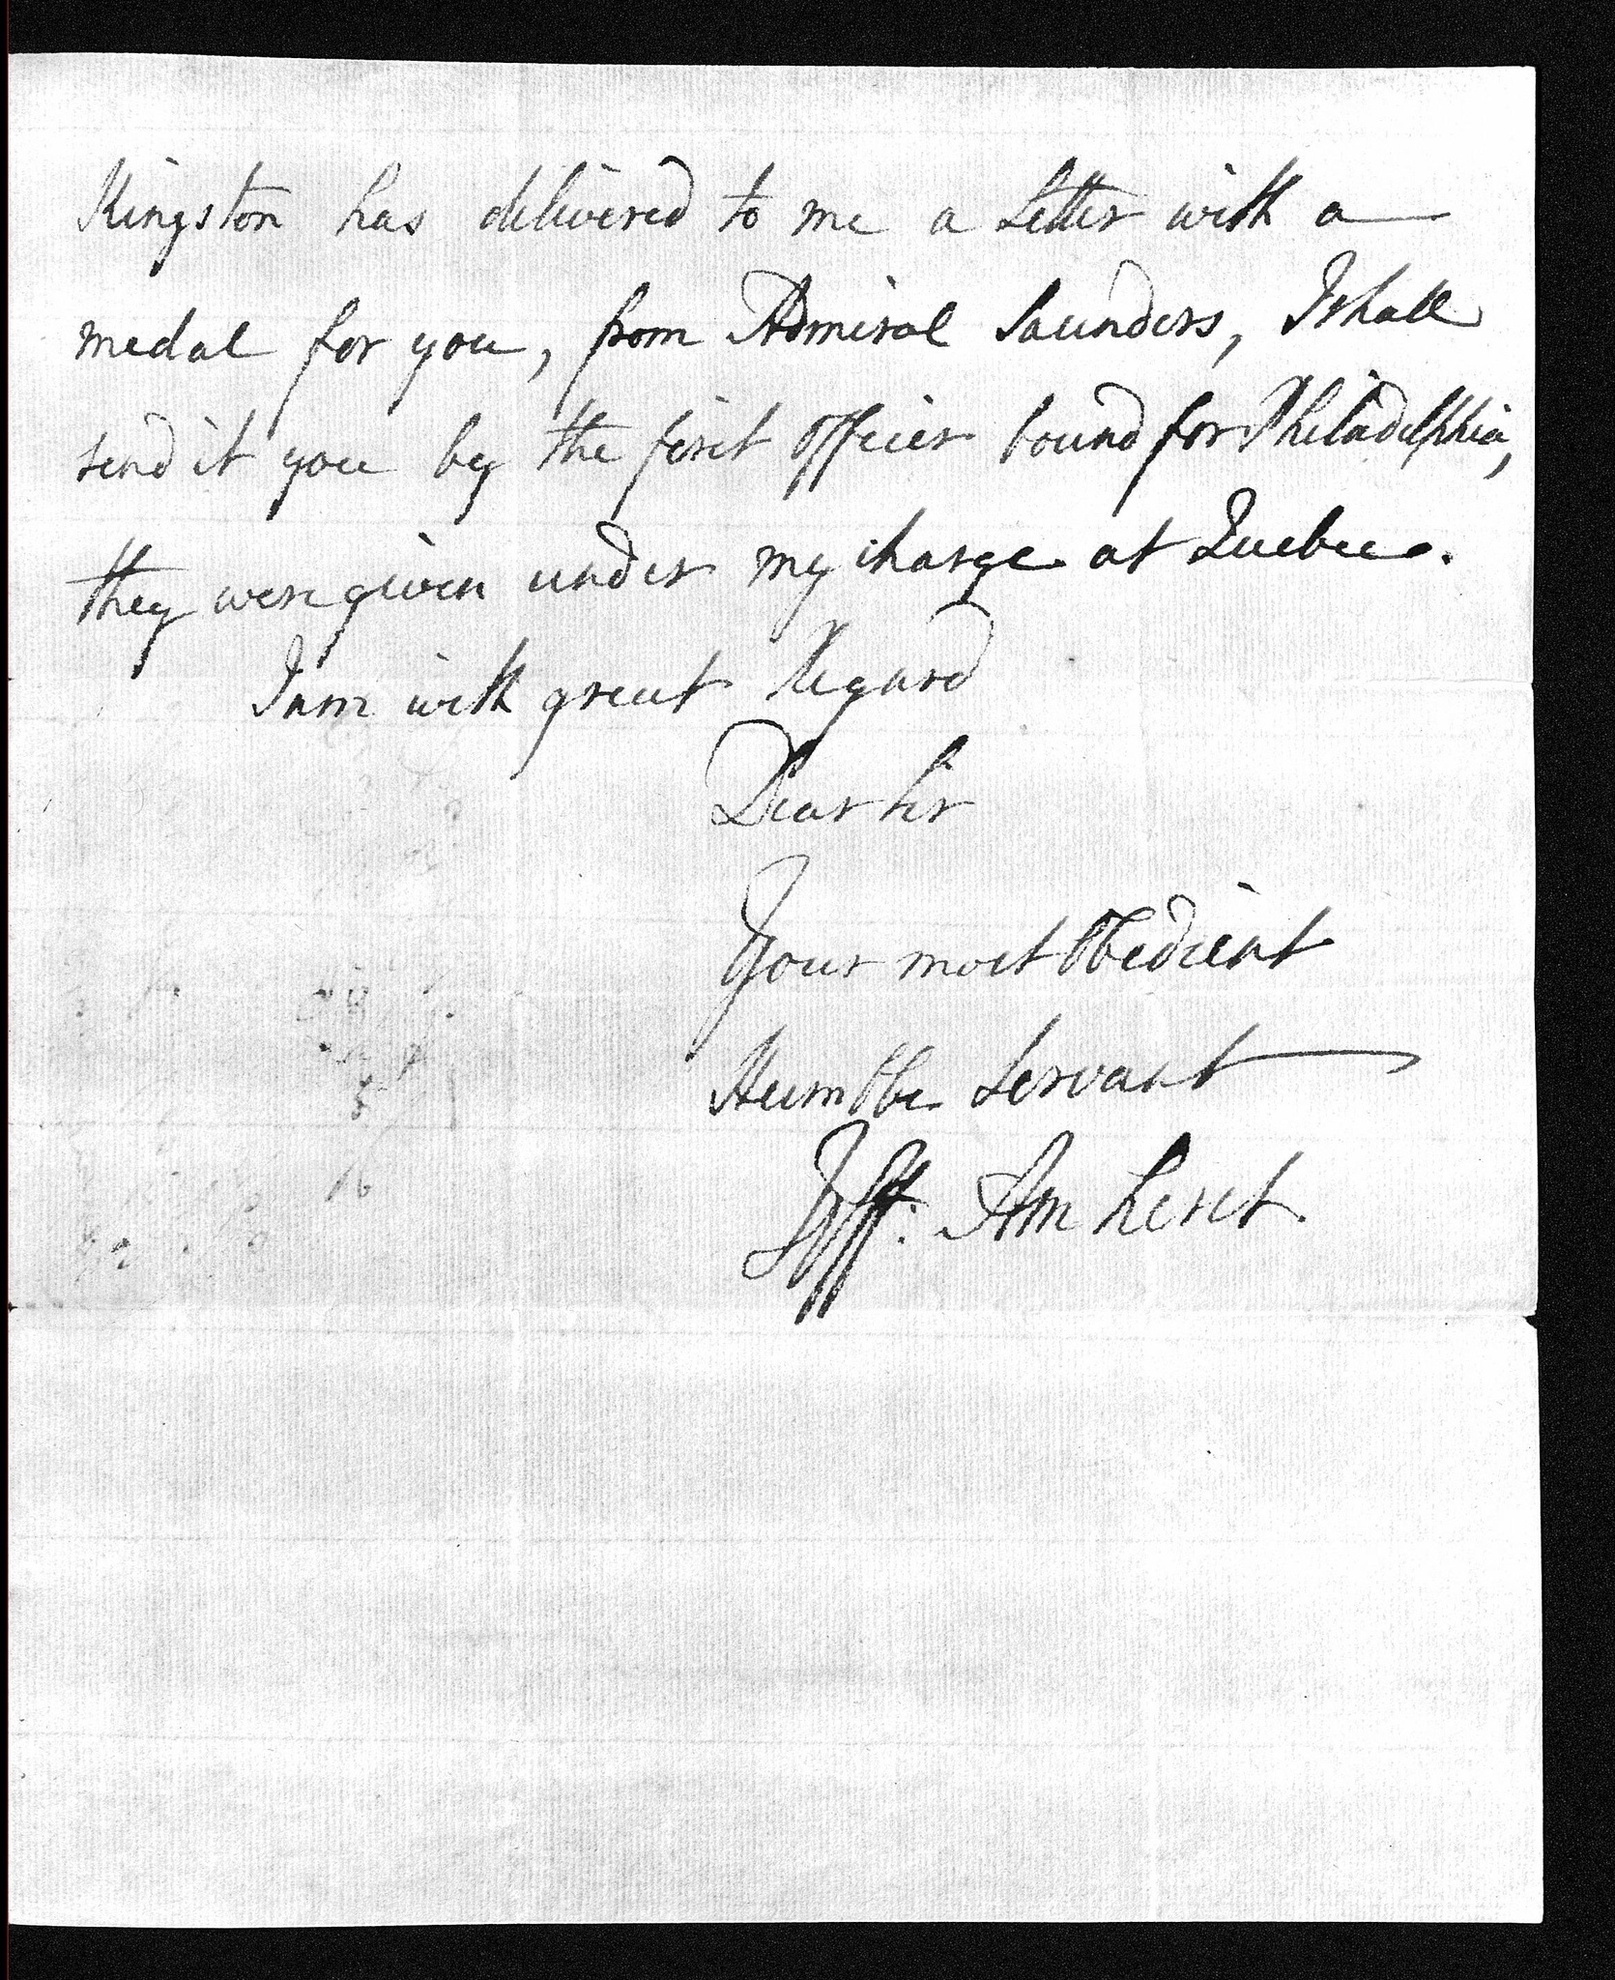 Kingston has delivered to me a Letter with a
medal for you, from Admiral Saunders, I shall
send it you by the first Officer bound for Philadelphia,
they were given under my charge at Quebec.
I am with great Regard
Dear Sir
Your most Obedient
Humble Servant
Jeff: Amherst